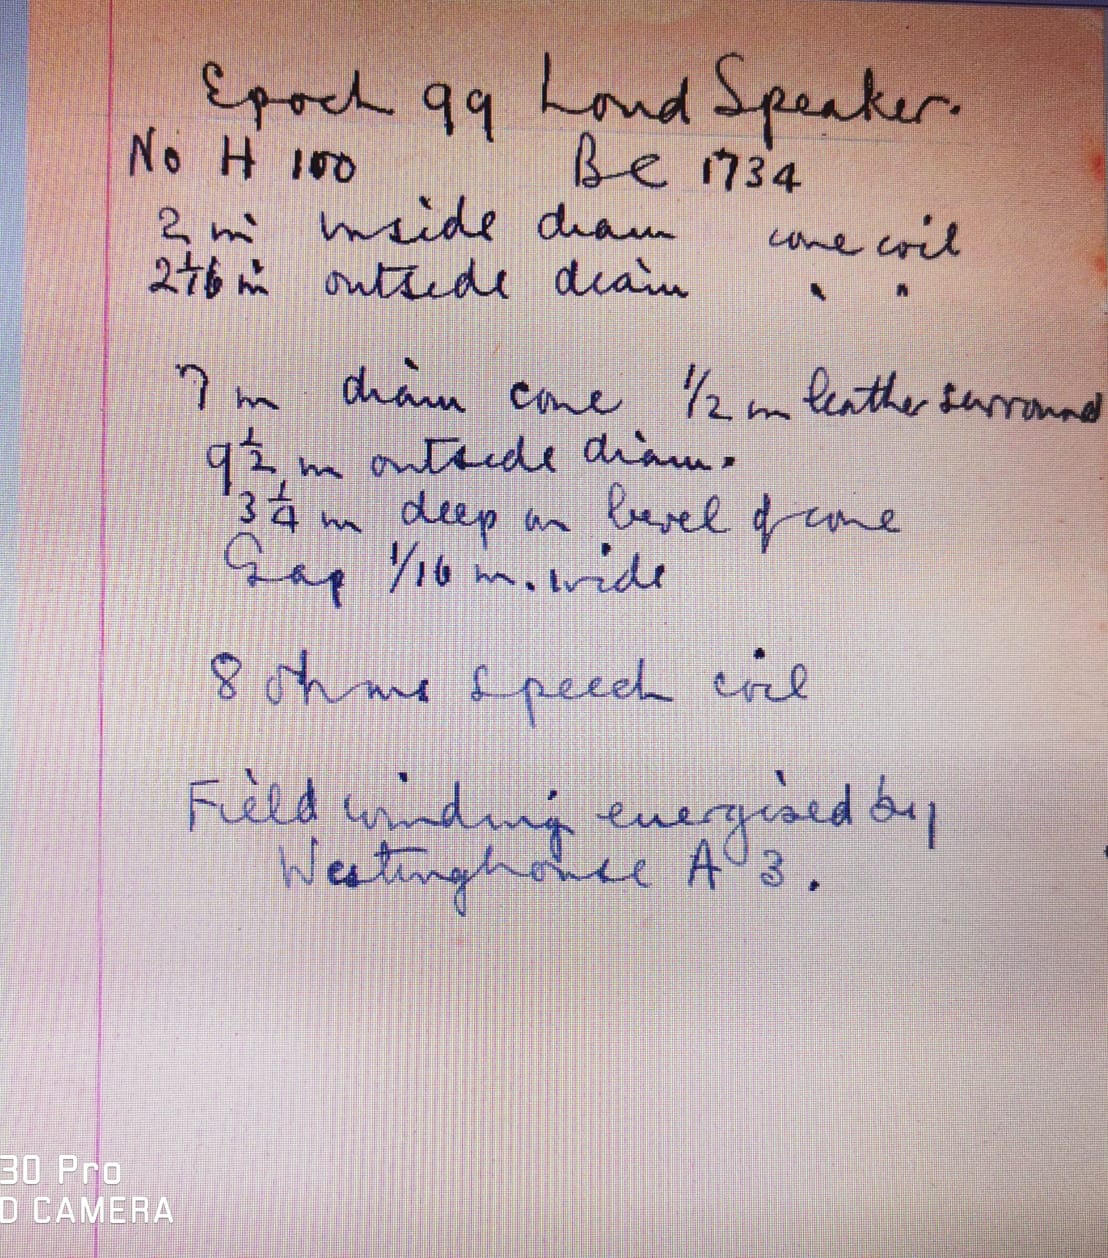 Epoch 99 Loud Speaker.
No H 100 Be 1734
2 in inside diam cone coil
2 1/16 in outside diam " "
7 in diam cone 1/2 in leather surround
9 1/2 in outside diam.
3 1/4 in deep on bevel of cone
Gap 1/16 in. wide
8 ohms speech coil
Field winding energised by
Westinghouse A 3.
30 Pro
D CAMERA